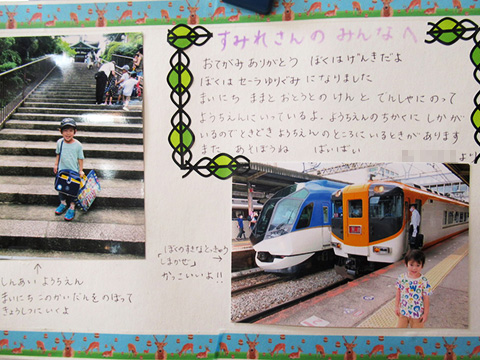 すみれさんの みんなへ
おてがみ ありがとう ぼくは げんきだよ
ぼくは セーラ ゆりぐみ に なりました
まいにち ままと おとうとの けんと でんしゃに のって
ようちえんに いっているよ。ようちえんの ちかくに しかが
いるので ときどき ようちえんの ところに いるときが あります
また あそぼうね ばいばい
より
しんあい ようちえん
まいにち このかいだんを のぼって
きょうしつに いくよ
(ぼくの すきな とっきゅう
「しまかぜ」
かっこいいよ!!